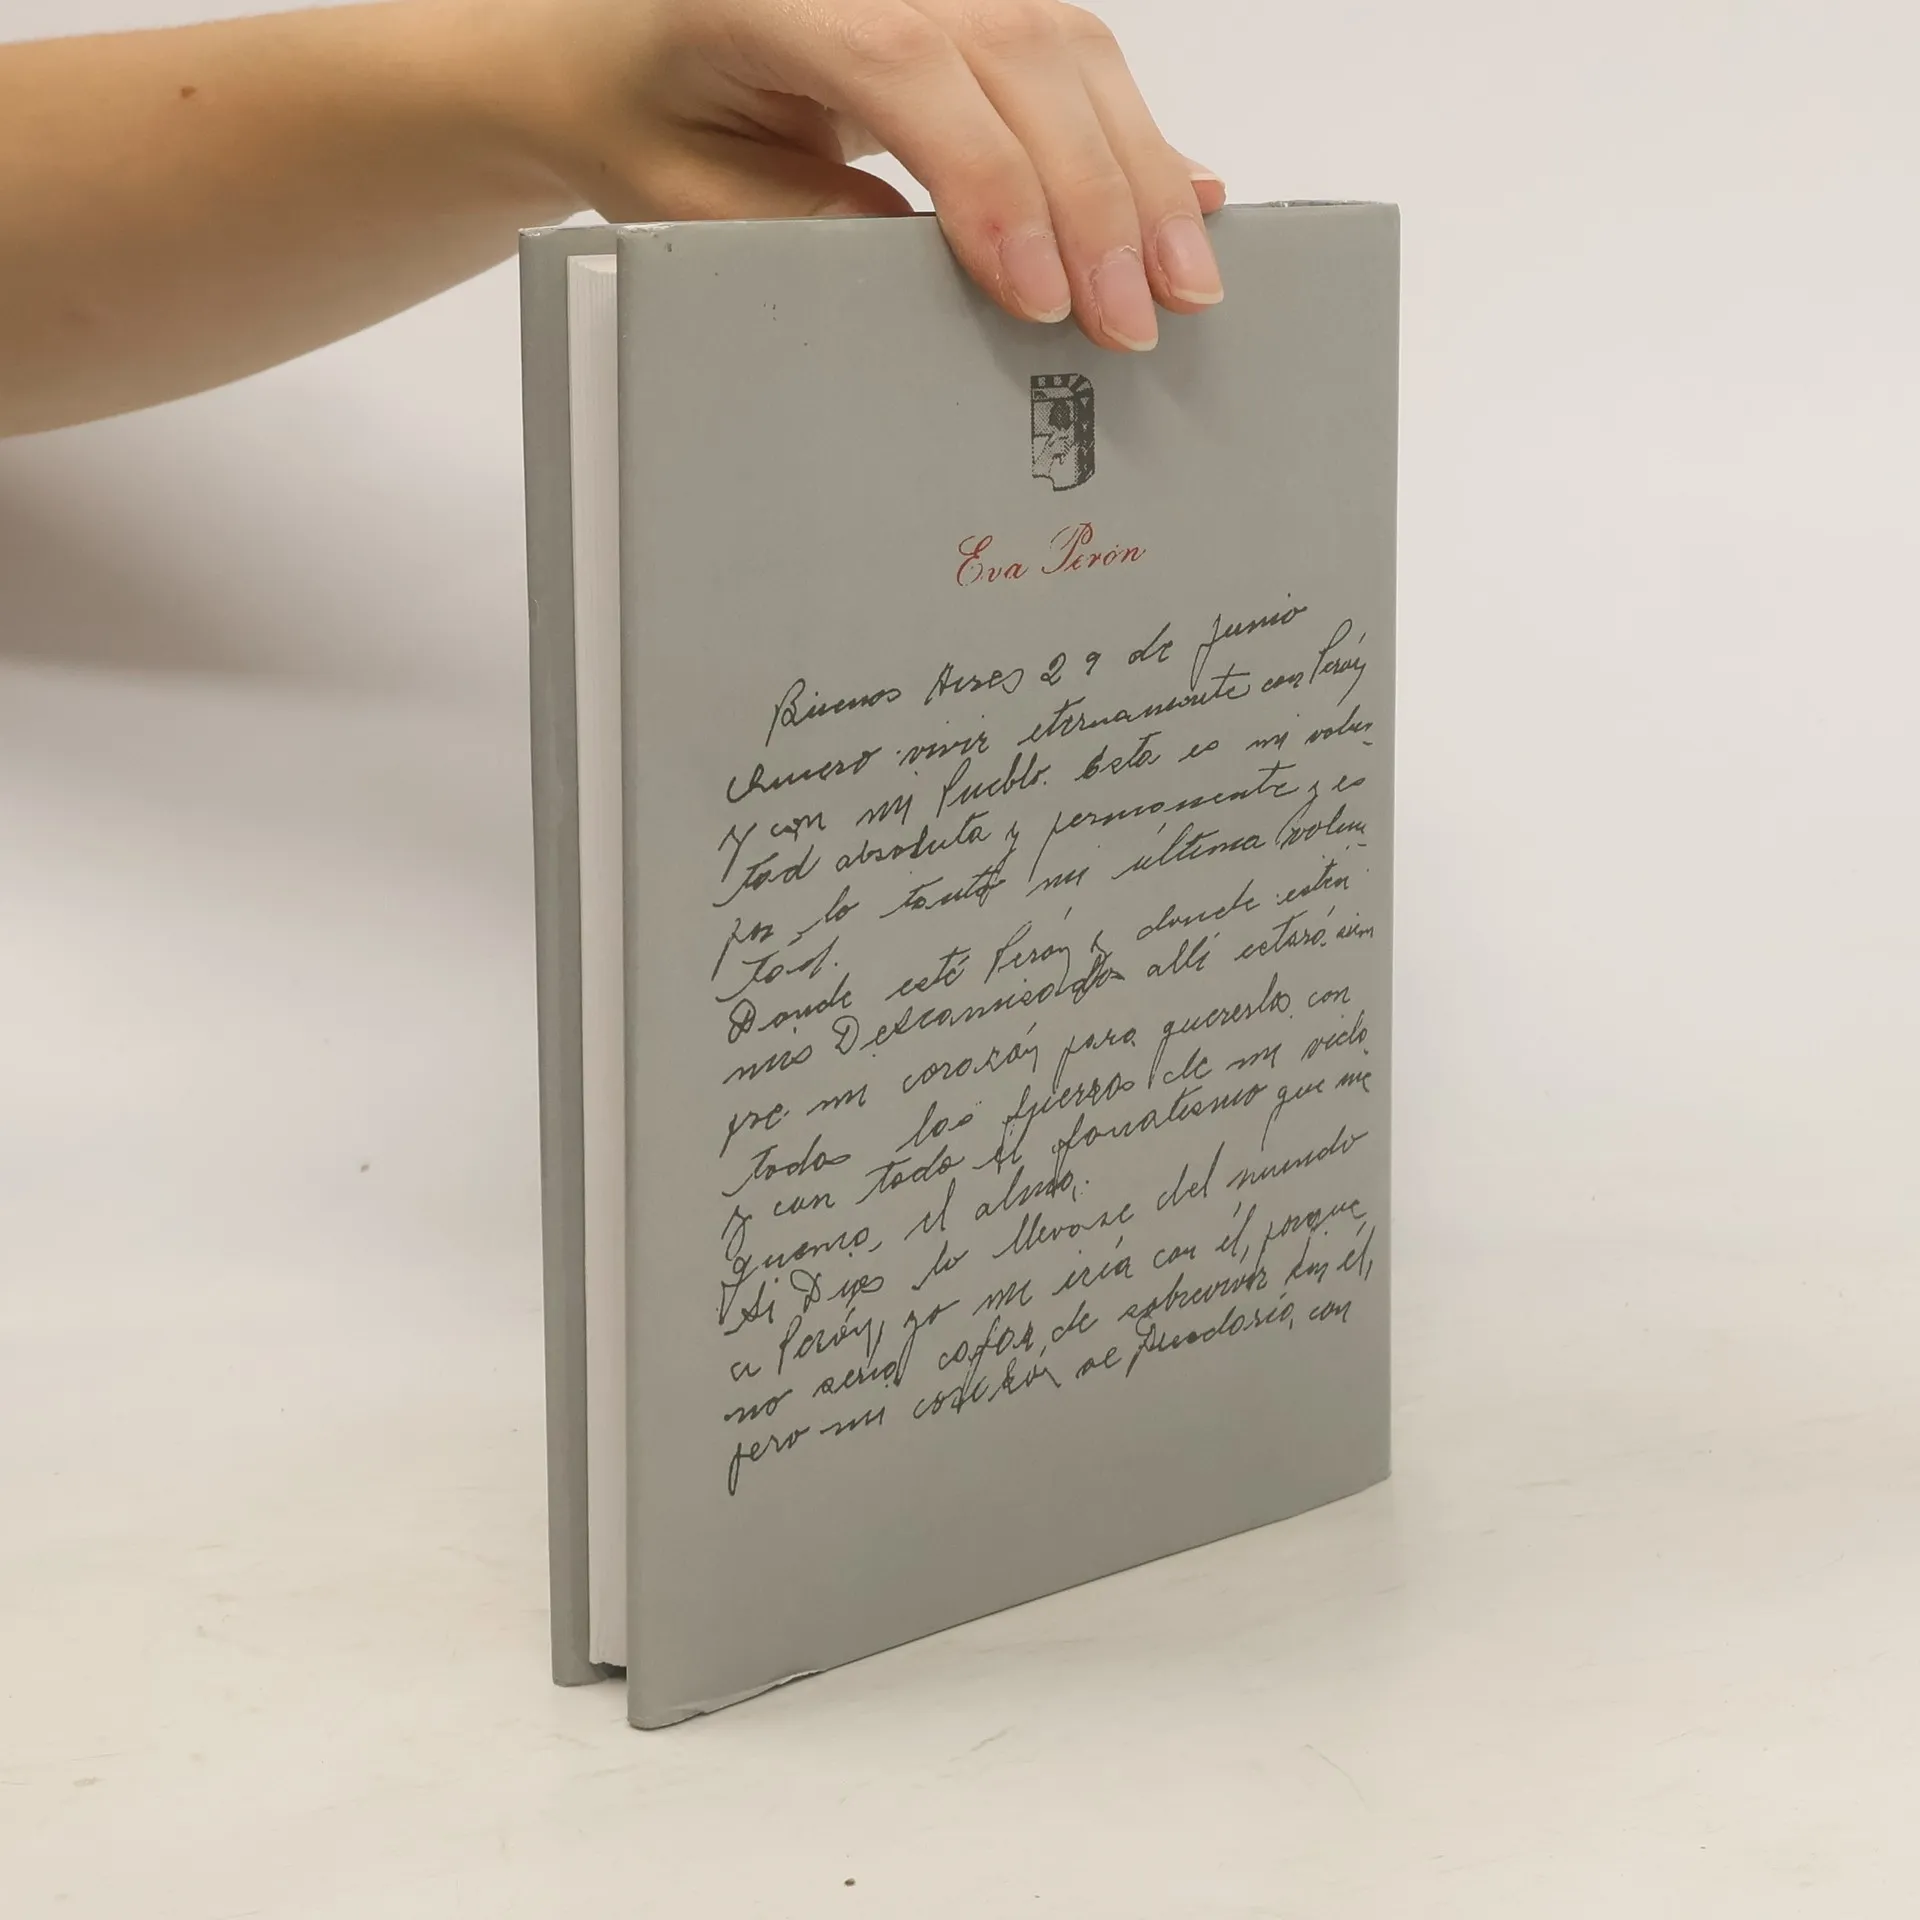 Eva Perón
Buenos Aires 29 de Junio
Quiero vivir eternamente con Perón
y con mi Pueblo. Esta es mi volun-
tad absoluta y permanente y es
por lo tanto mi última volun-
tad.
Donde esté Perón y donde estén
mis Descamisados allí estará siem
pre mi corazón para quererlos con
todas las fuerzas de mi vida
y con todo el fanatismo que me
quema el alma.
Si Dios lo llevase del mundo
a Perón, yo me iría con él, porque
no sería capaz de sobrevivir sin él,
pero mi corazón se quedaría, con